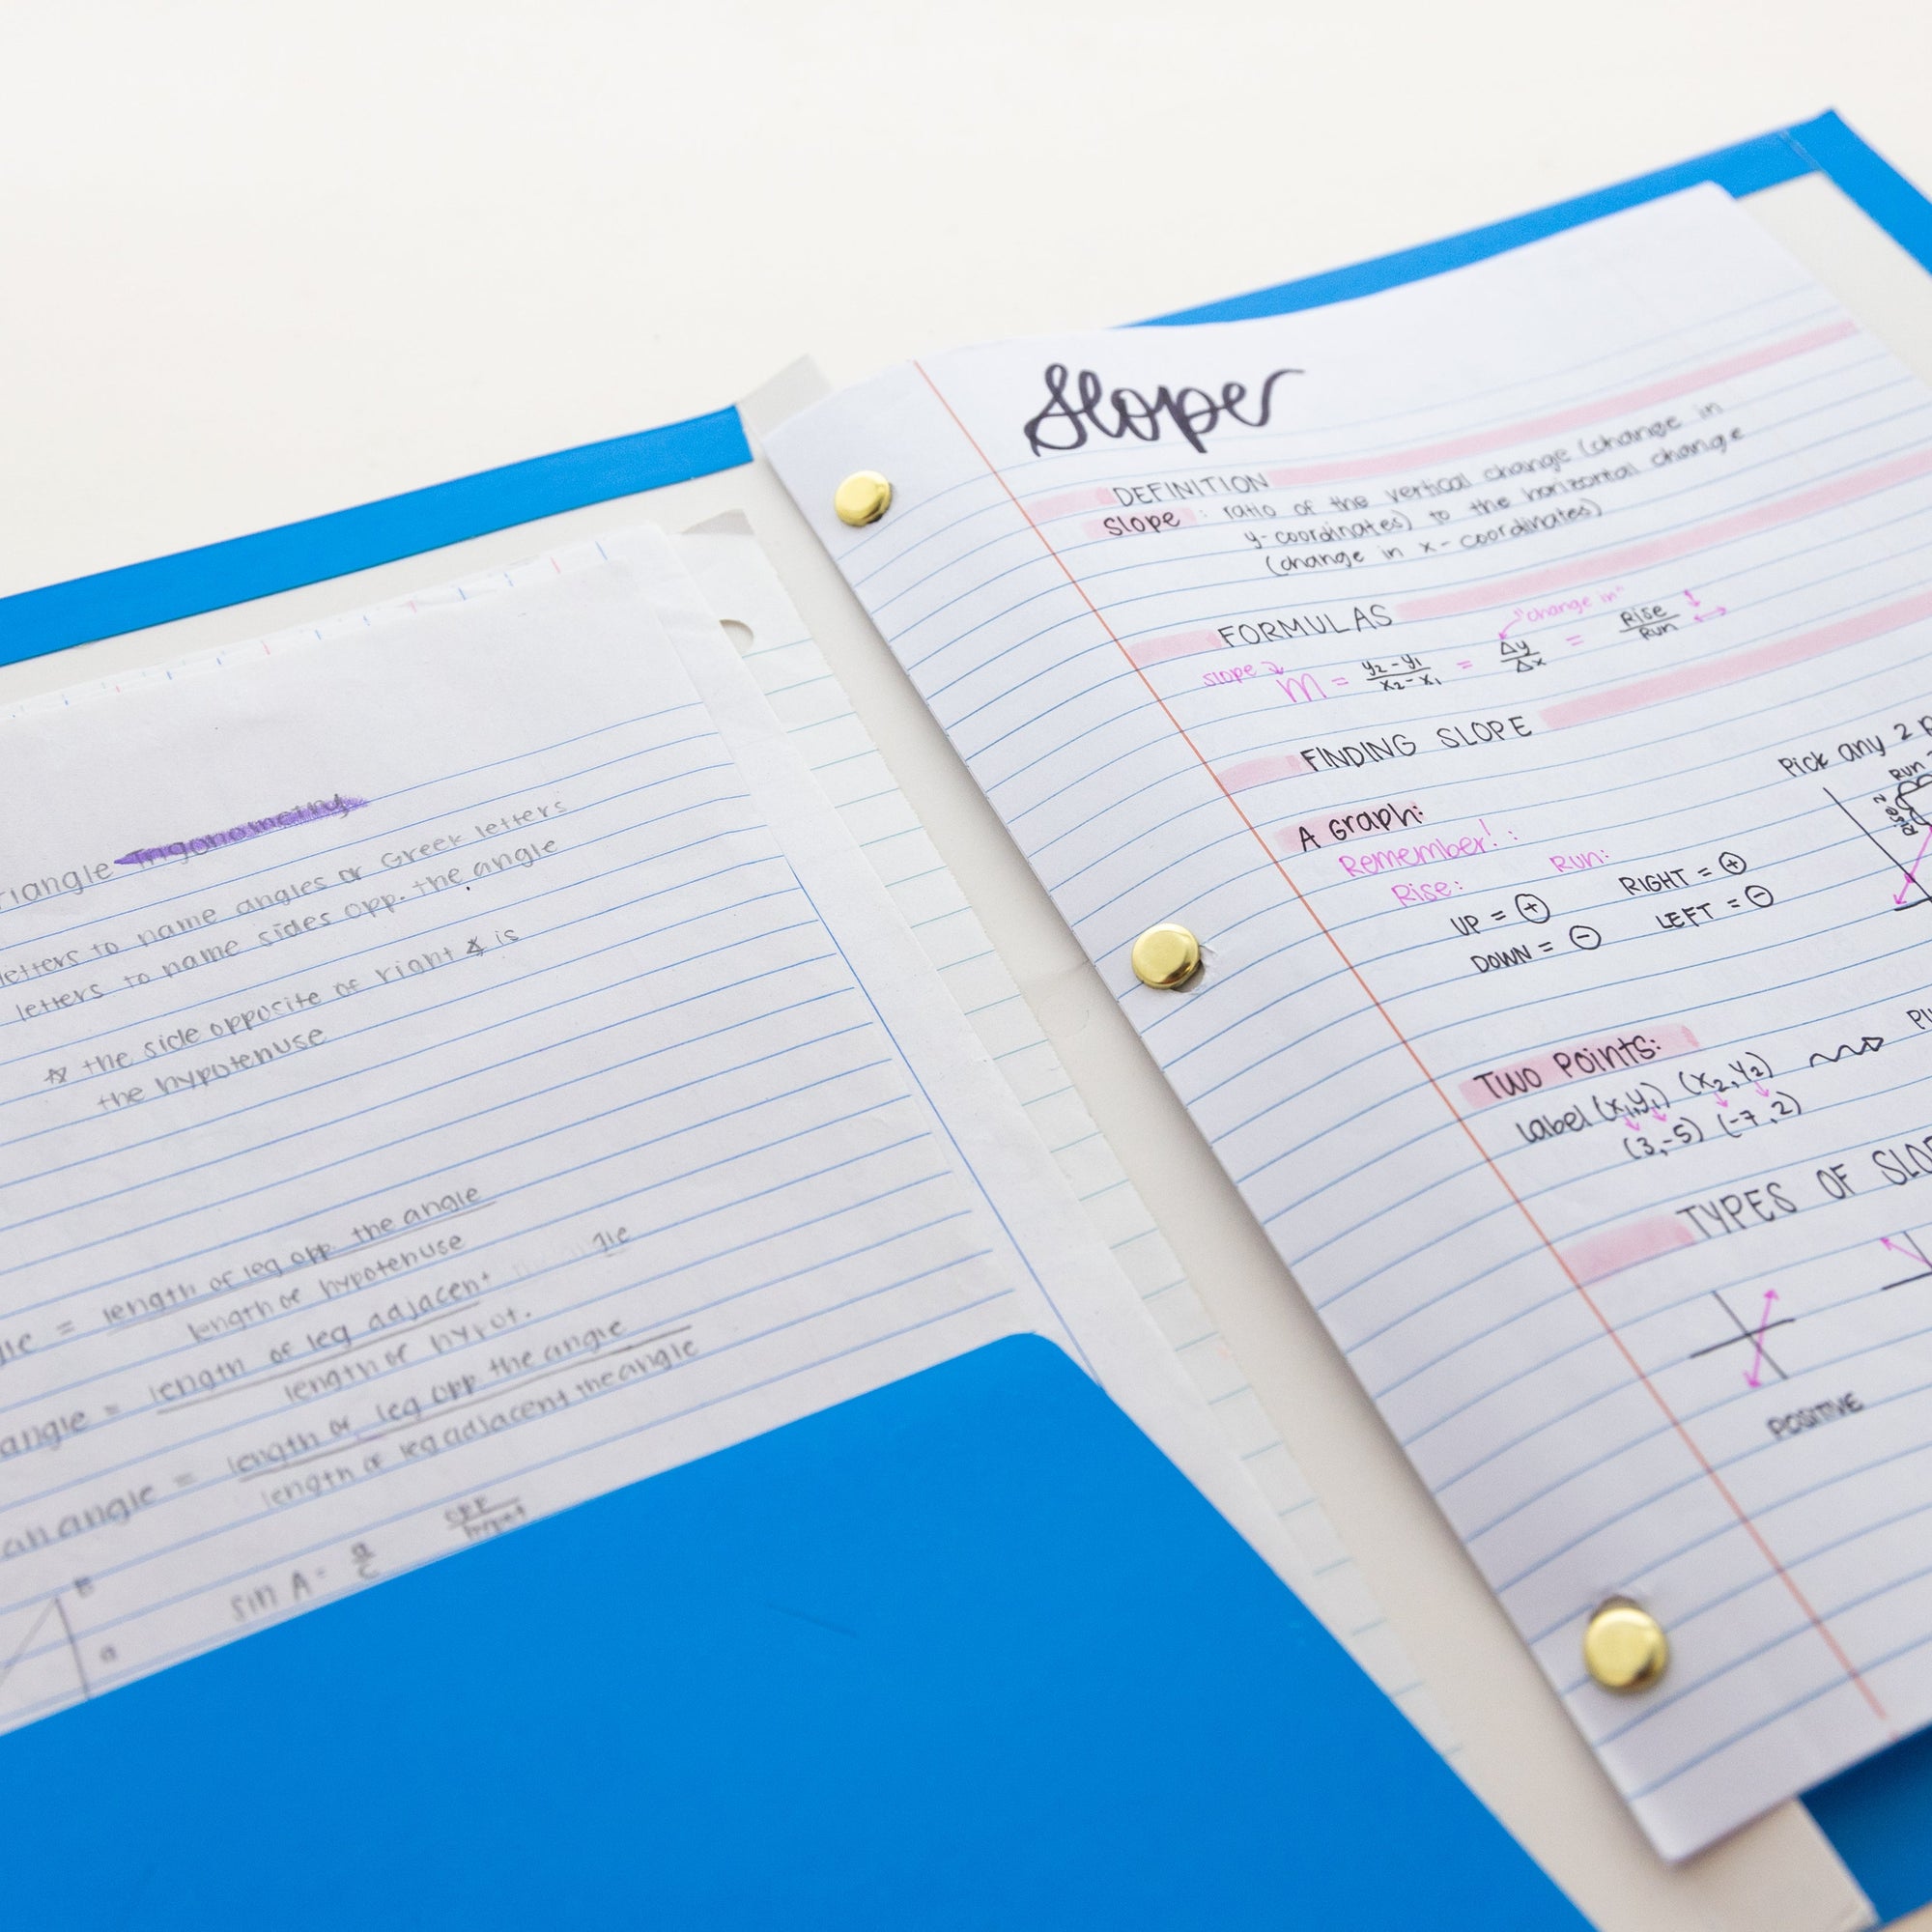 Trigonometry
letters to name angles or Greek letters
letters to name sides opp. the angle
☆ the side opposite of right ∡ is
the hypotenuse
= length of leg opp the angle
length of hypotenuse
angle = length of leg adjacent
length of hypot.
an angle = length of leg opp the angle
length of leg adjacent the angle
sin A = a/c opp/hypot
B
a
Slope
DEFINITION
Slope : ratio of the vertical change (change in
y-coordinates) to the horizontal change
(change in x-coordinates)
FORMULAS
"change in"
slope
m = y₂-y₁/x₂-x₁ = Δy/Δx = Rise/Run
FINDING SLOPE
Pick any 2
Run
Rise
A Graph:
Remember! :
Rise: Run:
UP = ⊕ RIGHT = ⊕
DOWN = ⊖ LEFT = ⊖
TWO POINTS:
Label (x₁,y₁) (x₂,y₂)
(3,-5) (-7,2)
TYPES OF
POSITIVE